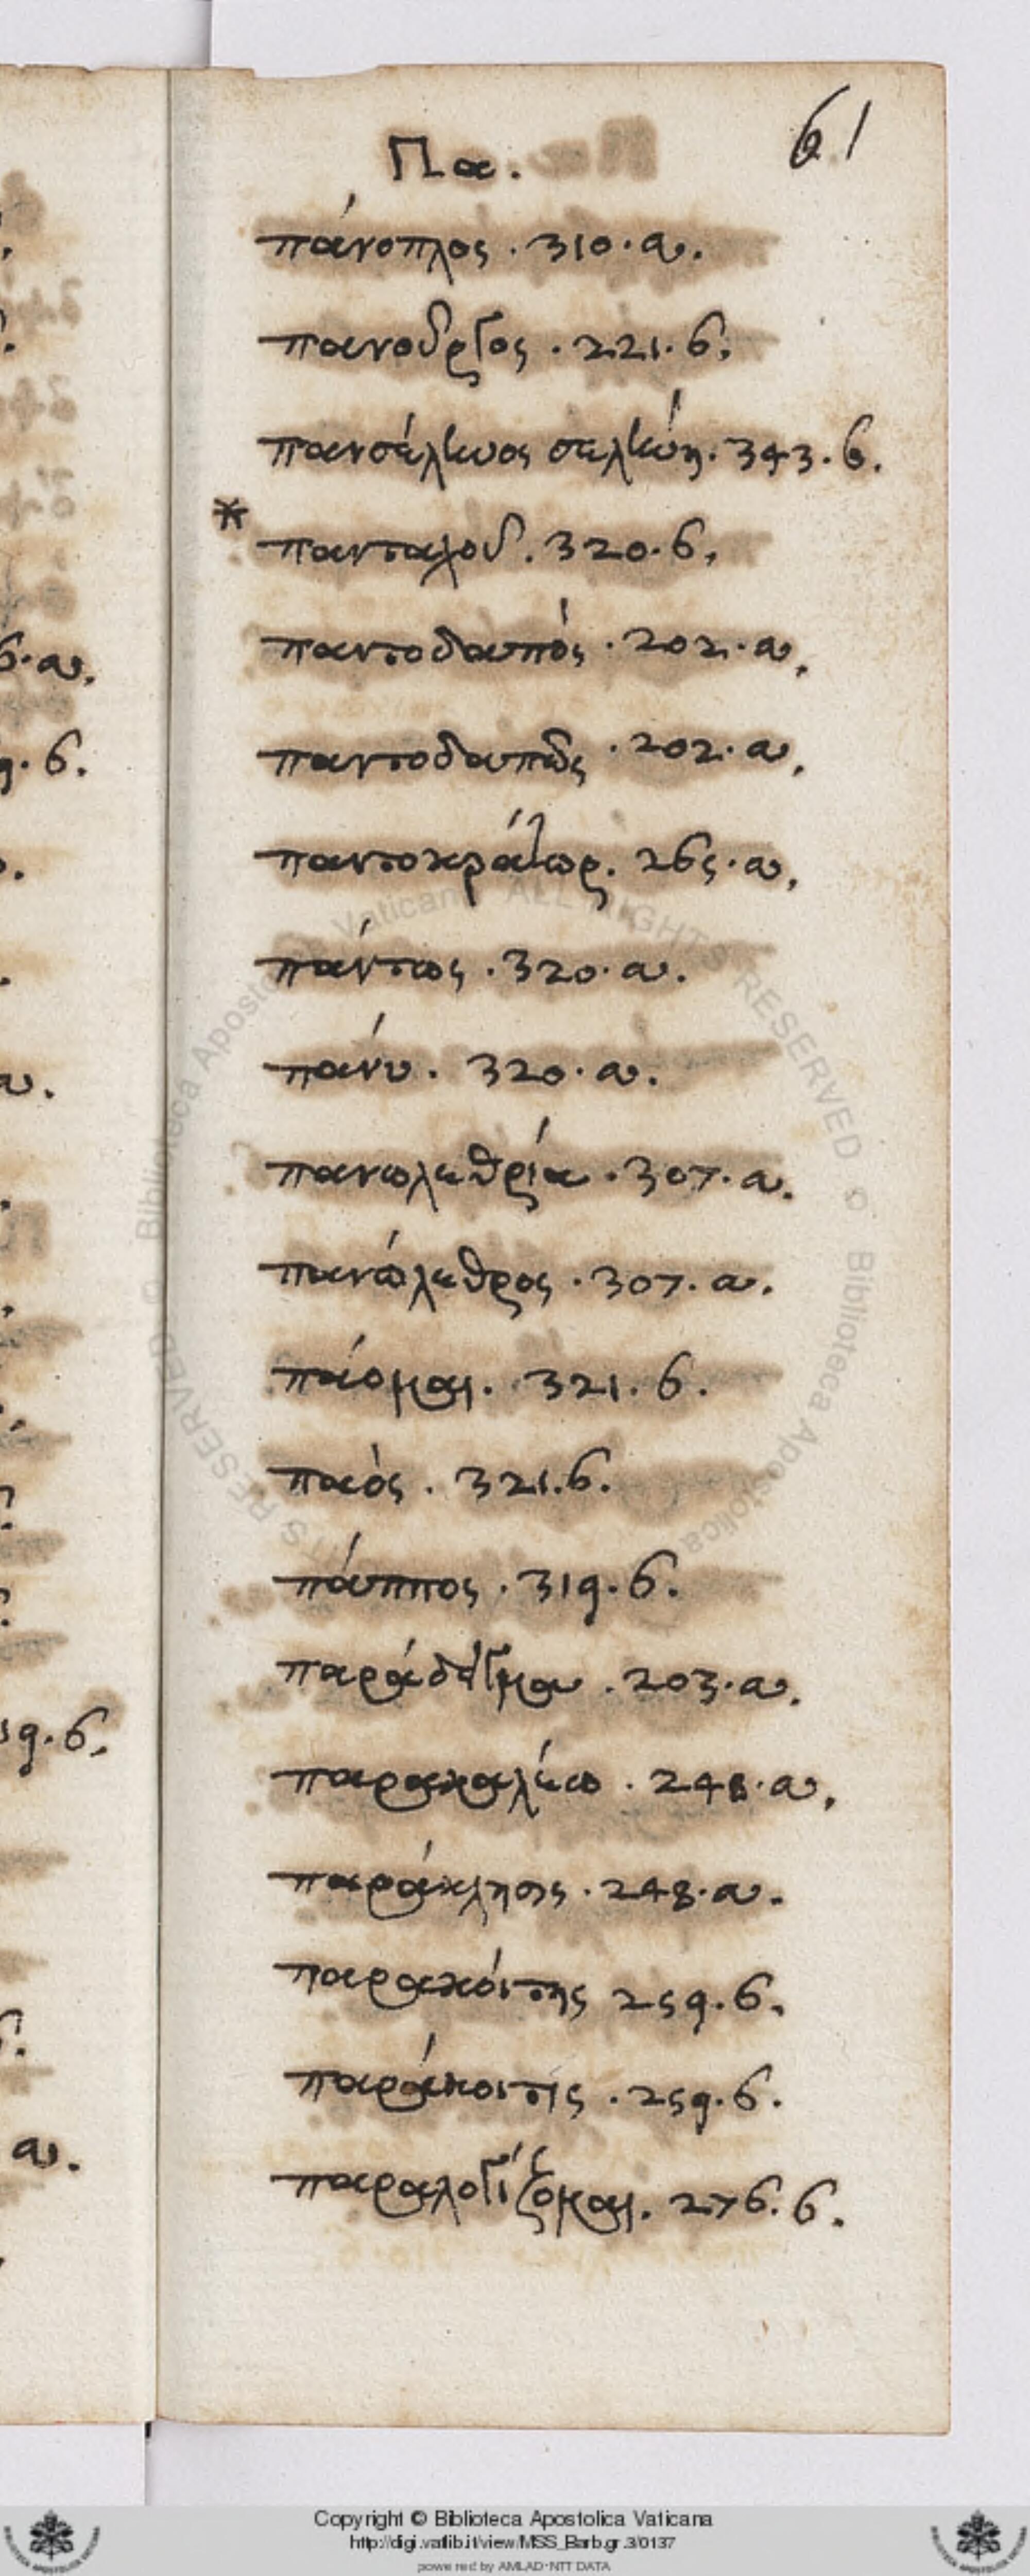 61
Πα.
πάνοπλος . 310. α.
πανοῦργος . 221. β.
πανσέληνος σελήνη. 343. β.
* πανταχοῦ. 320. β.
παντοδαπός . 202. α.
παντοδαπῶς . 202. α.
παντοκράτωρ. 265. α.
πάντως . 320. α.
πάνυ . 320. α.
πανωλεθρία . 307. α.
πανώλεθρος . 307. α.
πάομαι . 321. β.
παός . 321. β.
πάππος . 319. β.
παράδειγμα . 203. α.
παρακαλέω . 248. α.
παράκλησις . 248. α.
παρακοίτης 259. β.
παράκοιτις . 259. β.
παραλογίζομαι. 276. β.
Copyright © Biblioteca Apostolica Vaticana
http://digi.vatlib.it/view/MSS_Barb.gr.3/0137
powered by AMLAD-NTT DATA